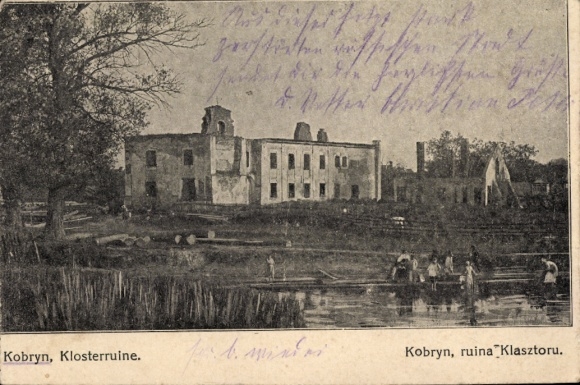 Aus dieser jetzt stark
zerstörten russischen Stadt
sendet dir die herzlichsten Grüße
d. Vetter Christian
Kobryn, Klosterruine.
b. wieder
Kobryn, ruina Klasztoru.